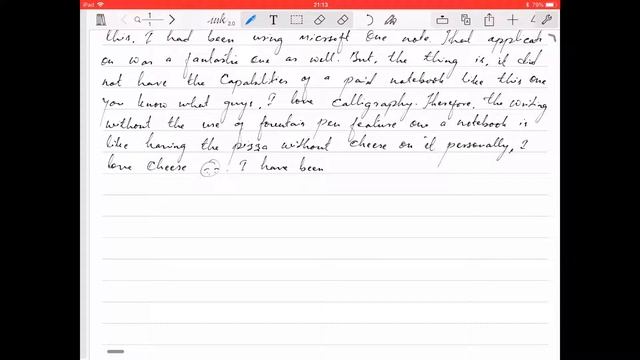 iPad 21:13 79%
1
1
ink 2.0
T
this, I had been using microsoft One note. That applicati
on was a fantastic one as well. But, the thing is, it did
not have the Capabilities of a paid notebook like this one
you know what guys, I love Calligraphy. Therefore, the writing
without the use of fountain pen feature one a notebook is
like having the pizza without cheese on it personally, I
love cheese . I have been